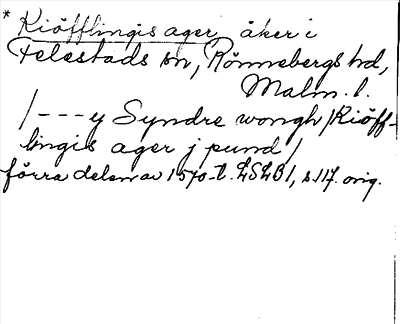 * Kiöfflingis ager, åker i
Felestads sn, Rönnebergs hd,
Malm. l.
/--- y Syndre wongh /Kiöff-
lingis ager j pund /
förra delen av 1570-t. LSLB 1, s. 117. orig.